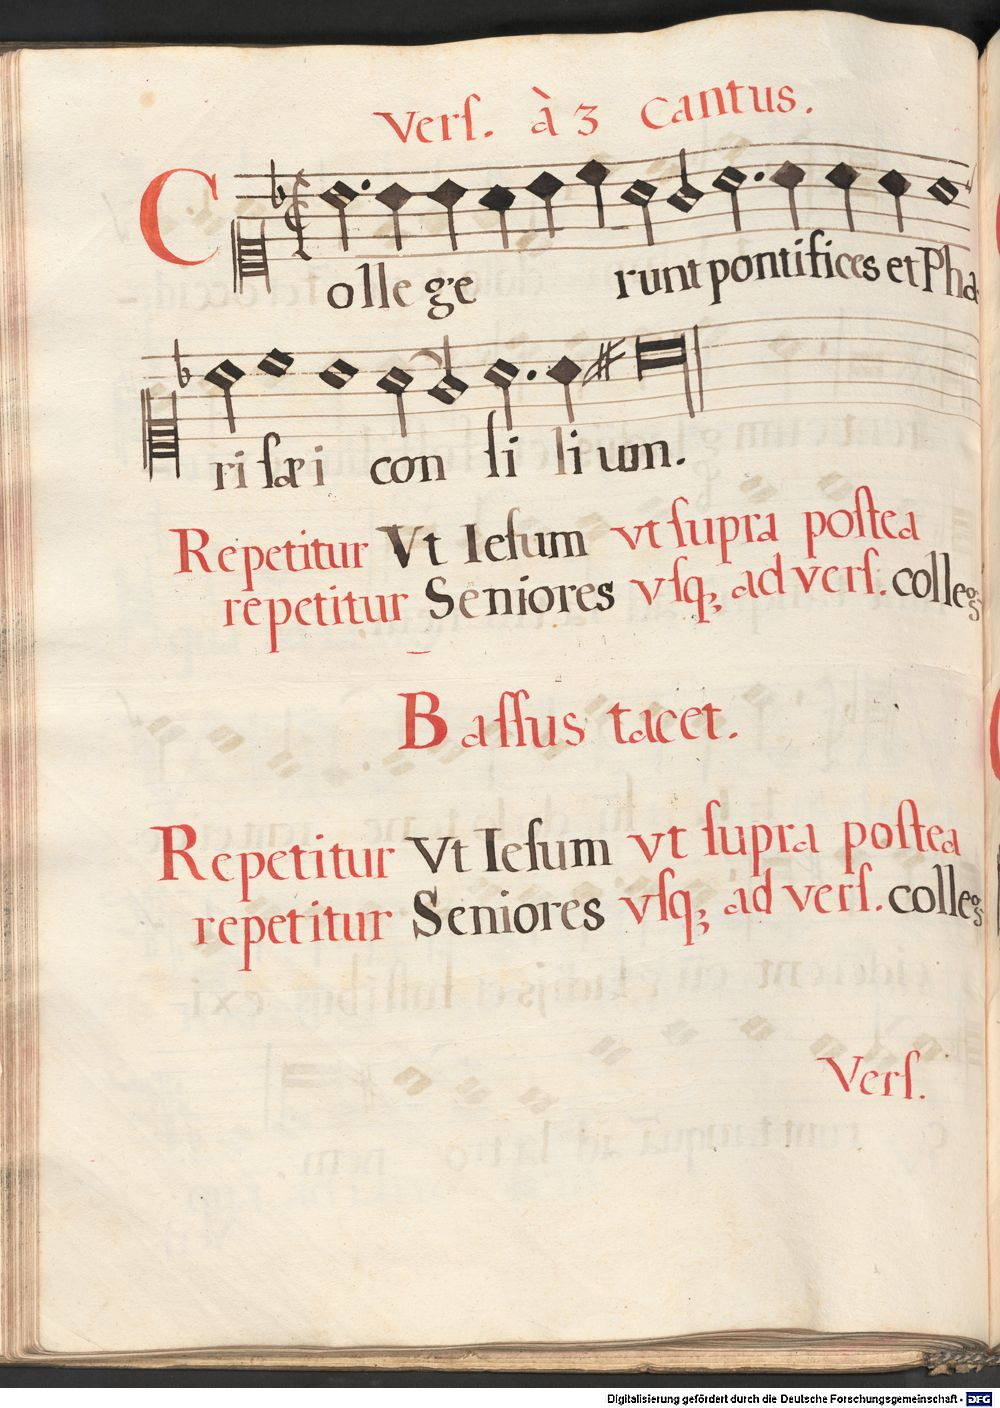 Verſ. à 3 Cantus.
Colle ge runt pontifices et Pha
ri ſæ i con ſi li um.
Repetitur Vt Ieſum vt ſupra poſtea
repetitur Seniores vſq; ad verſ. colleg
Baſſus tacet.
Repetitur Vt Ieſum vt ſupra poſtea
repetitur Seniores vſq; ad verſ. colleg
Verſ.
Digitalisierung gefördert durch die Deutsche Forschungsgemeinschaft - DFG